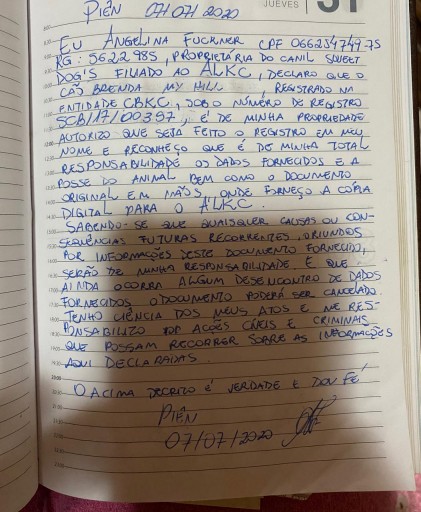 JUEVES 31
PIÊN 07/07/2020
EU ANGELINA FUCKNER CPF 06623474975
RG: 5622985, PROPRIETÁRIA DO CANIL SWEET
DOG'S FILIADO AO ALKC, DECLARO QUE O
CÃO BRENDA MY HILL, REGISTRADO NA
ENTIDADE CBKC, SOB O NÚMERO DE REGISTRO
SCB/17/00397, É DE MINHA PROPRIEDADE
AUTORIZO QUE SEJA FEITO O REGISTRO EM MEU
NOME E RECONHEÇO QUE É DE MINHA TOTAL
RESPONSABILIDADE OS DADOS FORNECIDOS E A
POSSE DO ANIMAL BEM COMO O DOCUMENTO
ORIGINAL EM MÃOS, ONDE FORNEÇO A CÓPIA
DIGITAL PARA O ALKC.
SABENDO-SE QUE QUAISQUER CAUSAS OU CON-
SEQUÊNCIAS FUTURAS RECORRENTES, ORIUNDOS
POR INFORMAÇÕES DESTE DOCUMENTO FORNECIDO,
SERÃO DE MINHA RESPONSABILIDADE E QUE
AINDA OCORRA ALGUM DESENCONTRO DE DADOS
FORNECIDOS O DOCUMENTO PODERÁ SER CANCELADO
TENHO CIÊNCIA DOS MEUS ATOS E ME RES-
PONSABILIZO POR AÇÕES CÍVEIS E CRIMINAIS
QUE POSSAM RECORRER SOBRE AS INFORMAÇÕES
AQUI DECLARADAS.
O ACIMA DESCRITO É VERDADE E DOU FÉ
PIÊN
07/07/2020